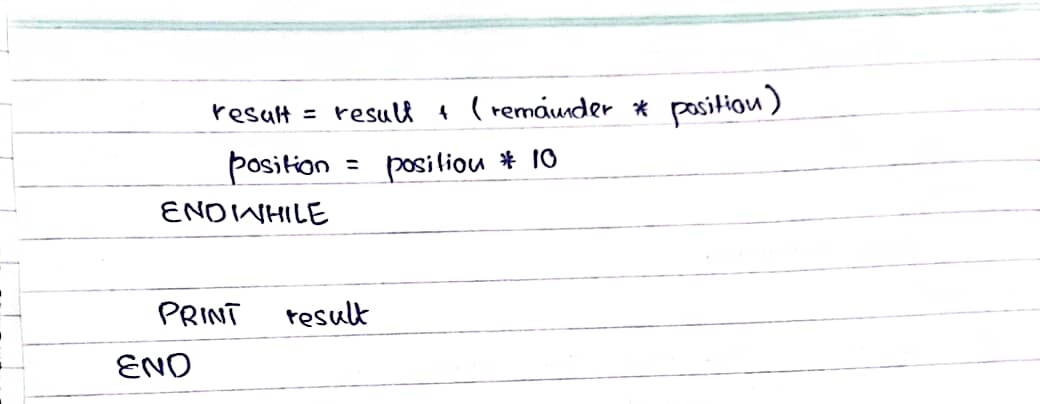 result = result + (remainder * position)
position = position * 10
ENDWHILE
PRINT result
END